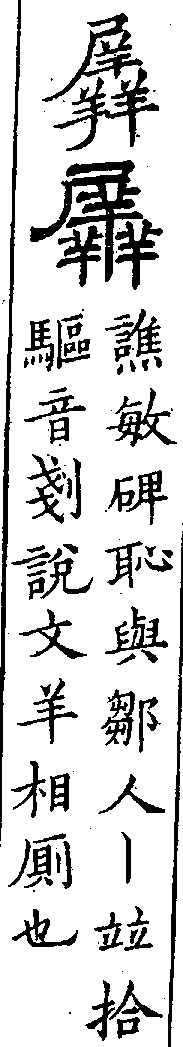 羼
羼
譙敏碑恥與鄒人丨竝拾
驅音剗說文羊相厠也